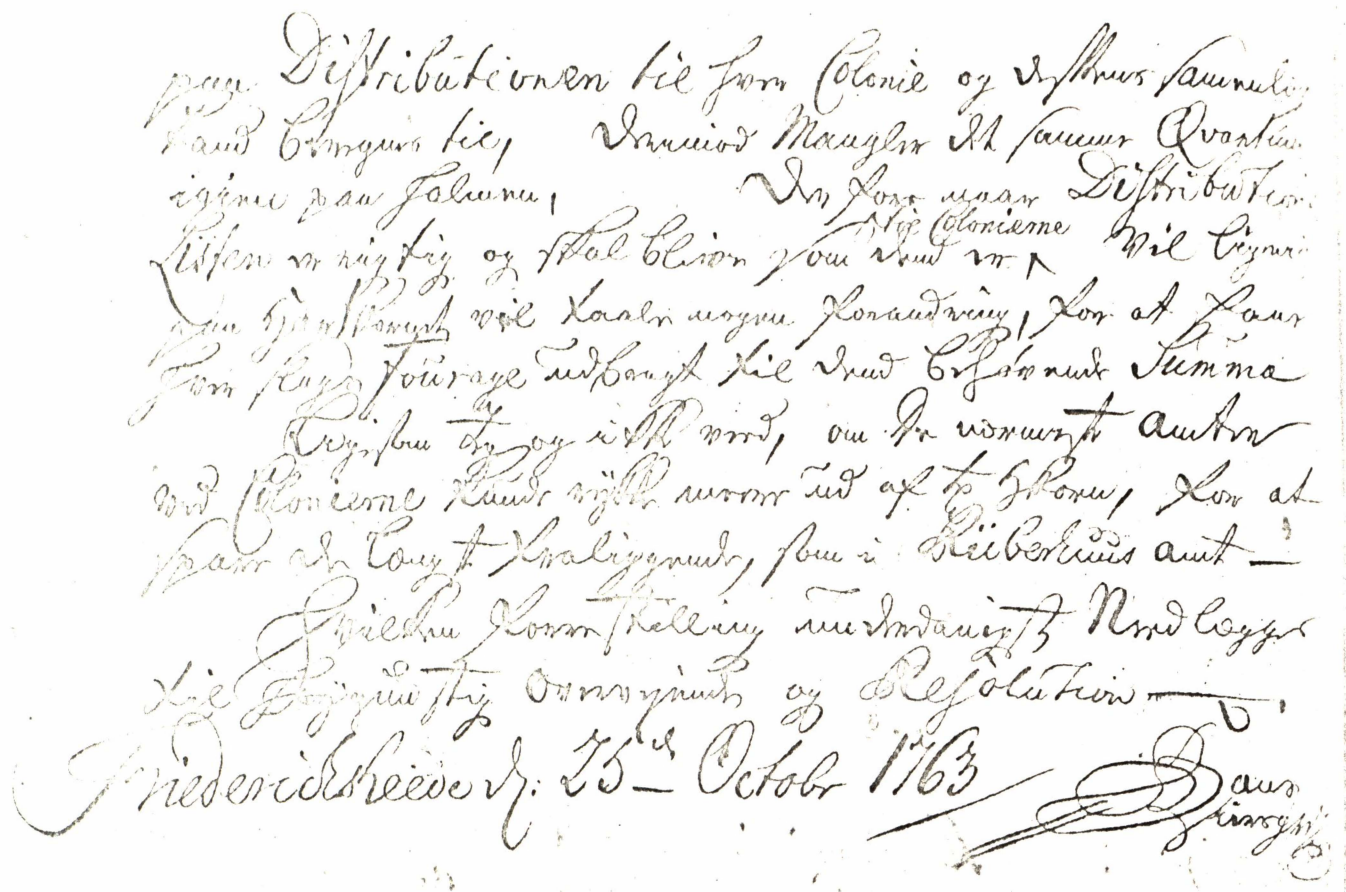 paa Distributionen til hver Colonie og dessens samenlig
Tand beregnes til, derimod Mangler det samme Qvantum
igien paa Holmen, der for naar Distributions
til Colonierne
Listen er rigtig og skal blive som dend er, Vil ligning
paa Hartkornet vel taale nogen forandring, for at faae
hver slags fourage udbragt til dend behøvende Summa
Ligesom og ikke veed, om de nærmeste Amter
ved Colonierne kunde rykke meere ud af Hkorn, for at
spare de langt fraliggende, som i Riiberhuus amt —
Hvilken forrestilling underdanigst Nedlægges
til Høygunstig overveyende og Resolution —
Friederichsheede d: 25de Octobr 1763